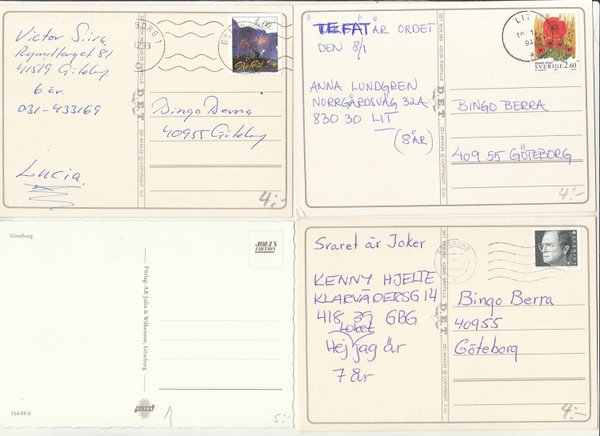 Victor Siira
Rymdtorget 81
41519 Göteborg
6 år
031-433169
Lucia
Bingo Berra
40955 Göteborg
4:-
TEFAT ÄR ORDET
DEN 8/1
ANNA LUNDGREN
NORRGÅRDSVÄG 32A
830 30 LIT
(8 ÅR)
LIT
SVERIGE 2.60
BINGO BERRA
409 55 GÖTEBORG
4:-
Göteborg
JOLIN
EDITION
Förlag: AB Jolin & Wilkenson, Göteborg
16648-0
1
5:-
Svaret är Joker
KENNY HJELTE
KLARVÄDERSG 14
418 39 GBG
Hej jag är
7 år
Bingo Berra
40955
Göteborg
4:-